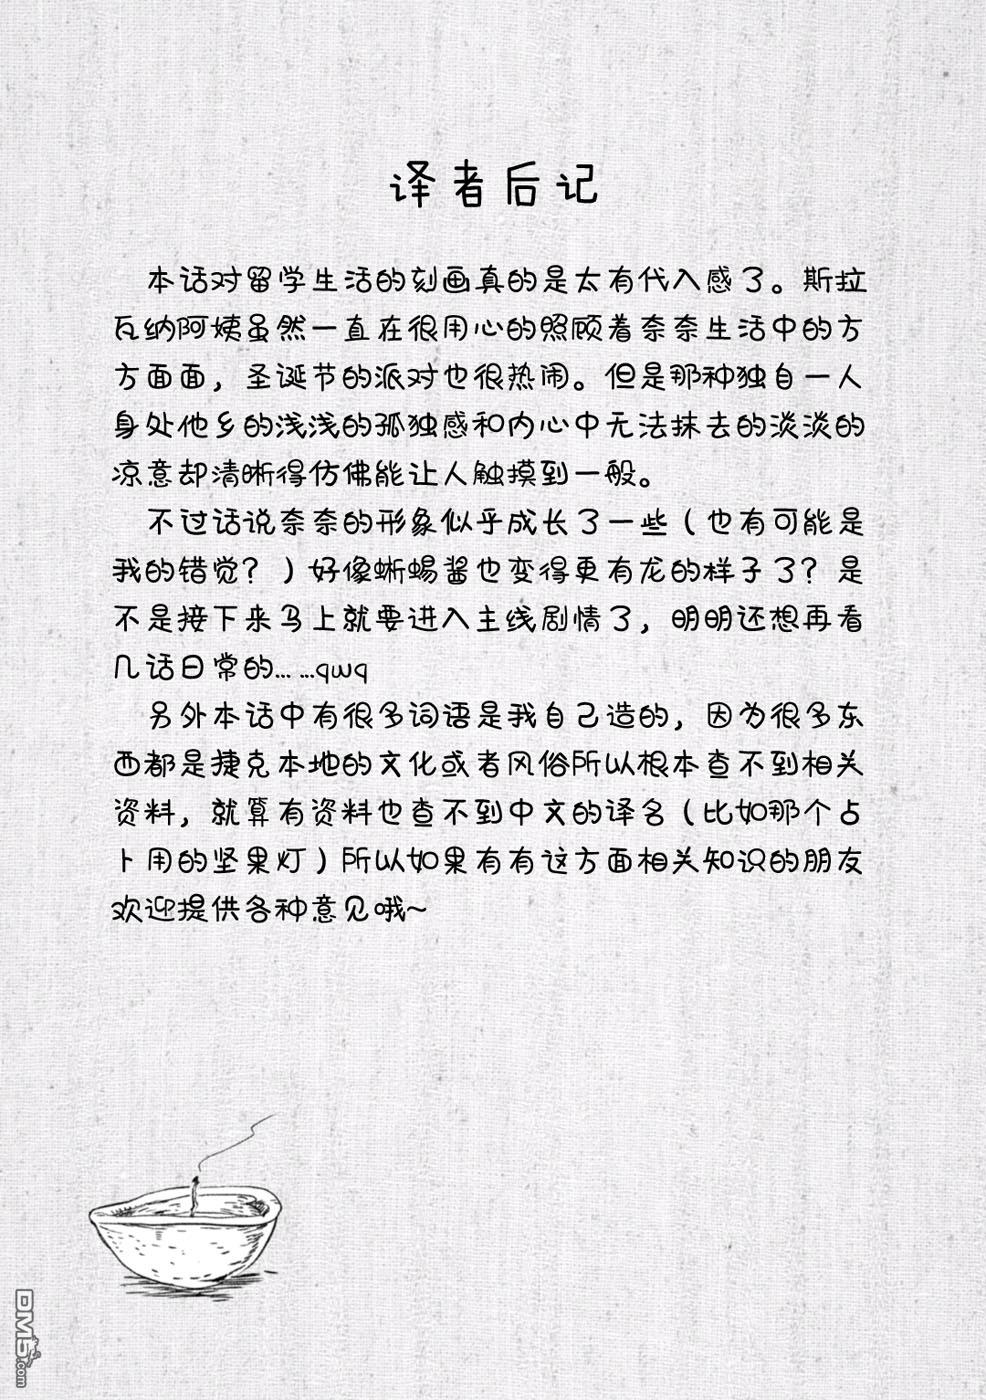 译者后记
本话对留学生活的刻画真的是太有代入感了。斯拉
瓦纳阿姨虽然一直在很用心的照顾着奈奈生活中的方
方面面，圣诞节的派对也很热闹。但是那种独自一人
身处他乡的浅浅的孤独感和内心中无法抹去的淡淡的
凉意却清晰得仿佛能让人触摸到一般。
不过话说奈奈的形象似乎成长了一些（也有可能是
我的错觉？）好像蜥蜴酱也变得更有龙的样子了？是
不是接下来马上就要进入主线剧情了，明明还想再看
几话日常的……qwq
另外本话中有很多词语是我自己造的，因为很多东
西都是捷克本地的文化或者风俗所以根本查不到相关
资料，就算有资料也查不到中文的译名（比如那个占
卜用的坚果灯）所以如果有有这方面相关知识的朋友
欢迎提供各种意见哦~
DM5.com